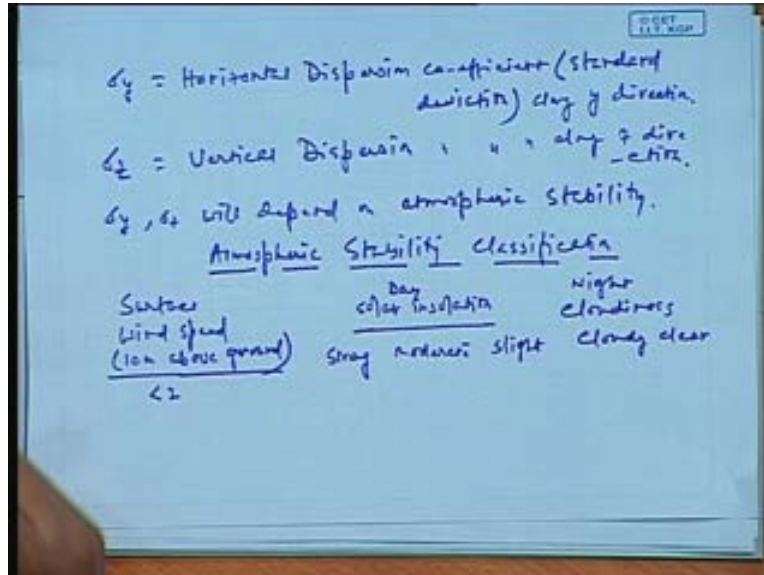 © CET
I.I.T. KGP
σy = Horizontal Dispersion co-efficient (standard
deviation) along y direction.
σz = Vertical Dispersion " " " along z dire
-ction.
σy, σz will depend on atmospheric stability.
Atmospheric Stability Classification
Surface Day Night
Wind speed solar insolation Cloudiness
(10m above ground) Strong moderate slight Cloudy clear
<2